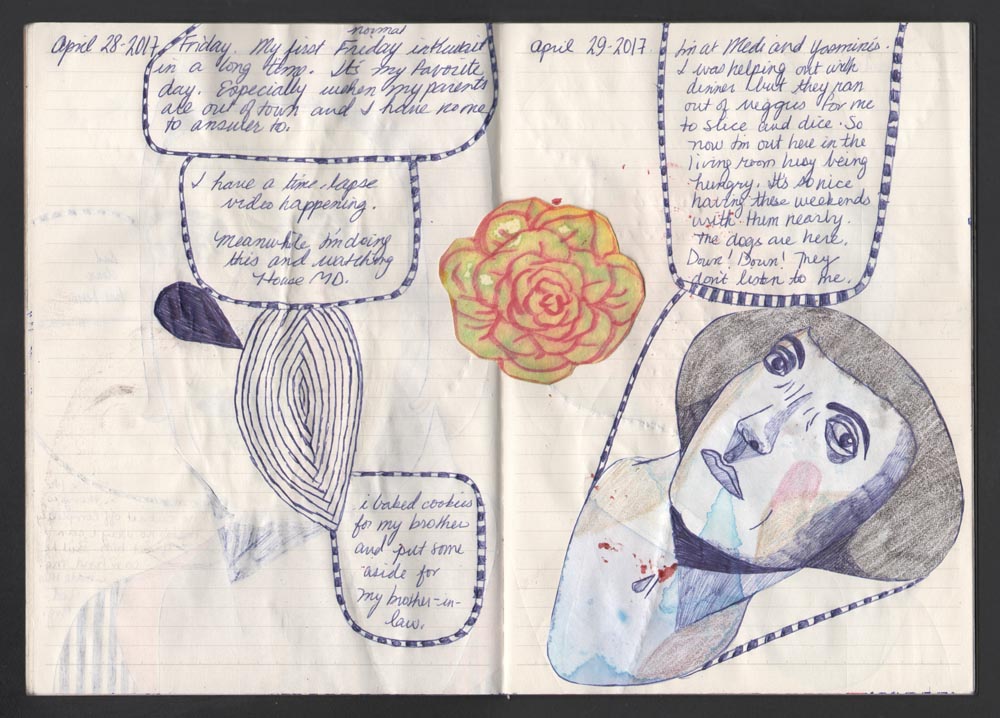 April 28-2017. Friday. My first normal Friday in Kuwait
in a long time. It's my favorite
day. Especially when my parents
are out of town and I have no one
to answer to.
I have a time lapse
video happening.
Meanwhile, I'm doing
this and watching
House MD.
i baked cookies
for my brother
and put some
aside for
my brother-in-
law.
april 29-2017. I'm at Medi and Yasmin's.
I was helping out with
dinner but they ran
out of veggies for me
to slice and dice. So
now I'm out here in the
living room busy being
hungry. It's so nice
having these weekends
with them nearly.
The dogs are here.
Down! Down! They
don't listen to me.